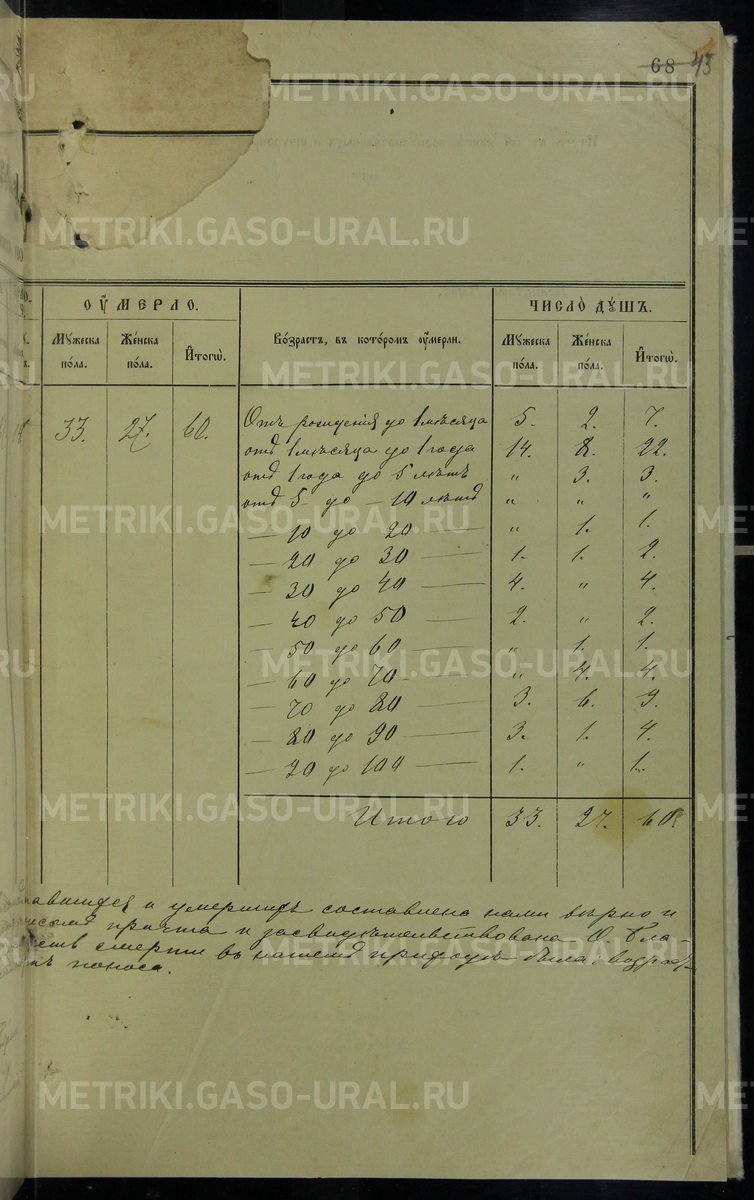 68 43
ОУМЕРЛО. ЧИСЛО ДУШЪ.
Мужеска пола. Женска пола. Итогѡ. Возрастъ, въ которомъ оумерли. Мужеска пола. Женска пола. Итогѡ.
33. 27. 60. Отъ рождения до 1 мѣсяца 5. 2. 7.
отъ 1 мѣсяца до 1 года 14. 8. 22.
отъ 1 года до 5 лѣтъ " 3. 3.
отъ 5 до – 10 лѣтъ " " "
— 10 до 20 — " 1. 1.
— 20 до 30 — 1. 1. 2.
— 30 до 40 — 4. " 4.
— 40 до 50 — 2. " 2.
— 50 до 60 — " 1. 1.
— 60 до 70 — " 4. 4.
— 70 до 80 — 3. 6. 9.
— 80 до 90 — 3. 1. 4.
— 90 до 100 — 1. " 1.
Итого 33. 27. 60.
и умершихъ составлена нами вѣрно и
причта и засвидѣтельствована О. Бла-
смерти въ нашемъ приходѣ была:
поноса.
METRIKI.GASO-URAL.RU